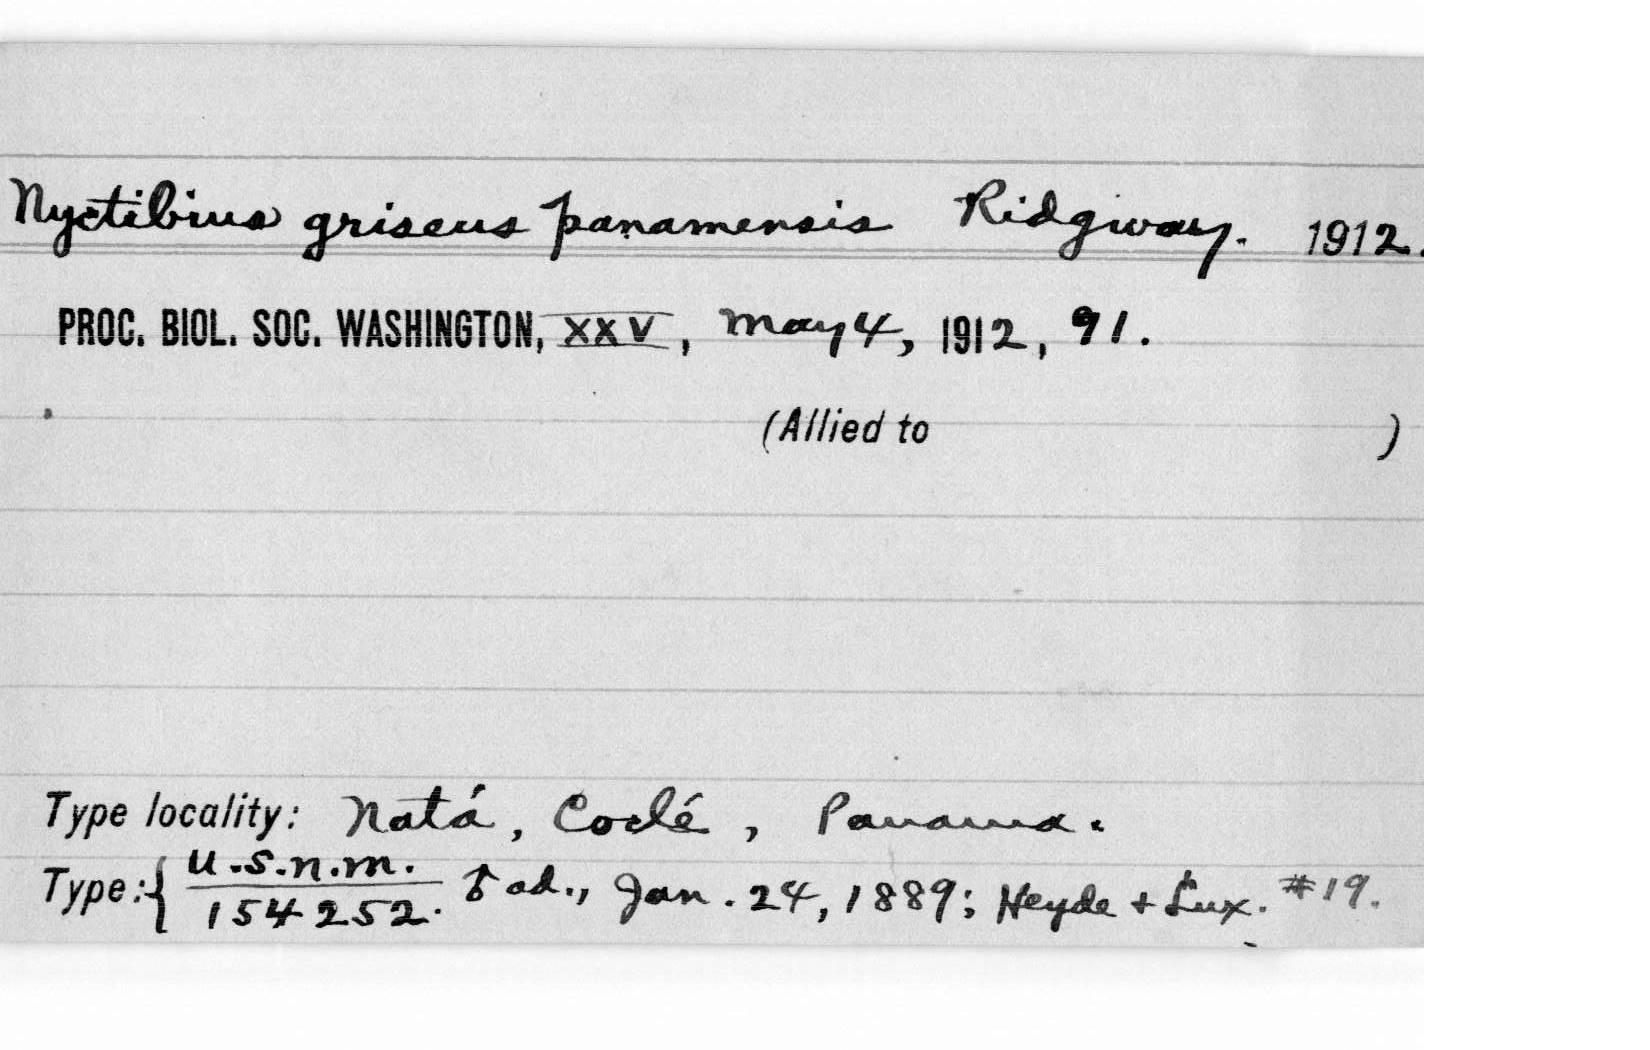 Nyctibius griseus panamensis Ridgway. 1912.
PROC. BIOL. SOC. WASHINGTON, XXV, May 4, 1912, 91.
(Allied to )
Type locality: Natá, Coclé, Panama.
Type:{ U.S.N.M. 154252. ♂ ad., Jan. 24, 1889; Heyde + Lux. #19.